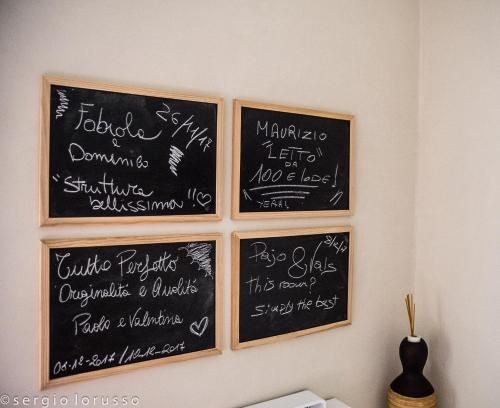 Fabiola
26/11/17
e
Domenico
"Struttura
bellissima"!!
MAURIZIO
"LETTO"
DA
100 E LODE!
Tutto Perfetto
Originalità e Qualità
Paolo e Valentina
08-12-2017/10-12-2017
Pajo &
this room?
simply the best
©sergio lorusso